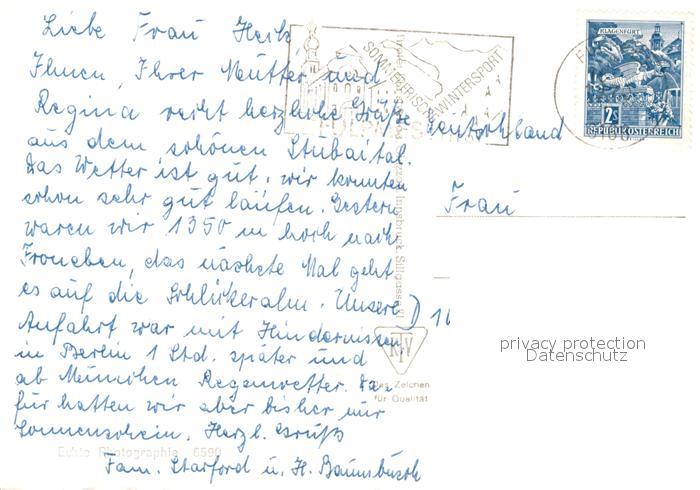 Liebe Frau Heik,
Ihnen, Ihrer Mutter und
Regina recht herzliche Grüße
aus dem schönen Stubaital.
Das Wetter ist gut, wir konnten
schon sehr gut laufen. Gestern
waren wir 1350 m hoch nach
Froneben, das nächste Mal geht
es auf die Schlickeralm. Unsere
Anfahrt war mit Hindernissen,
in Berlin 1 Std. später und
ab München Regenwetter. Da-
für hatten wir aber bisher nur
Sonnenschein. Herzl. Grüße
Fam. Starford u. H. Baumbusch
Echte Photographie 6590
SOMMERFRISCHE WINTERSPORT
FULPMES
Innsbruck, Sillgasse 21
RTV
Das Zeichen
für Qualität
KLAGENFURT
2S
REPUBLIK ÖSTERREICH
Deutschland
Frau
D 1
privacy protection
Datenschutz